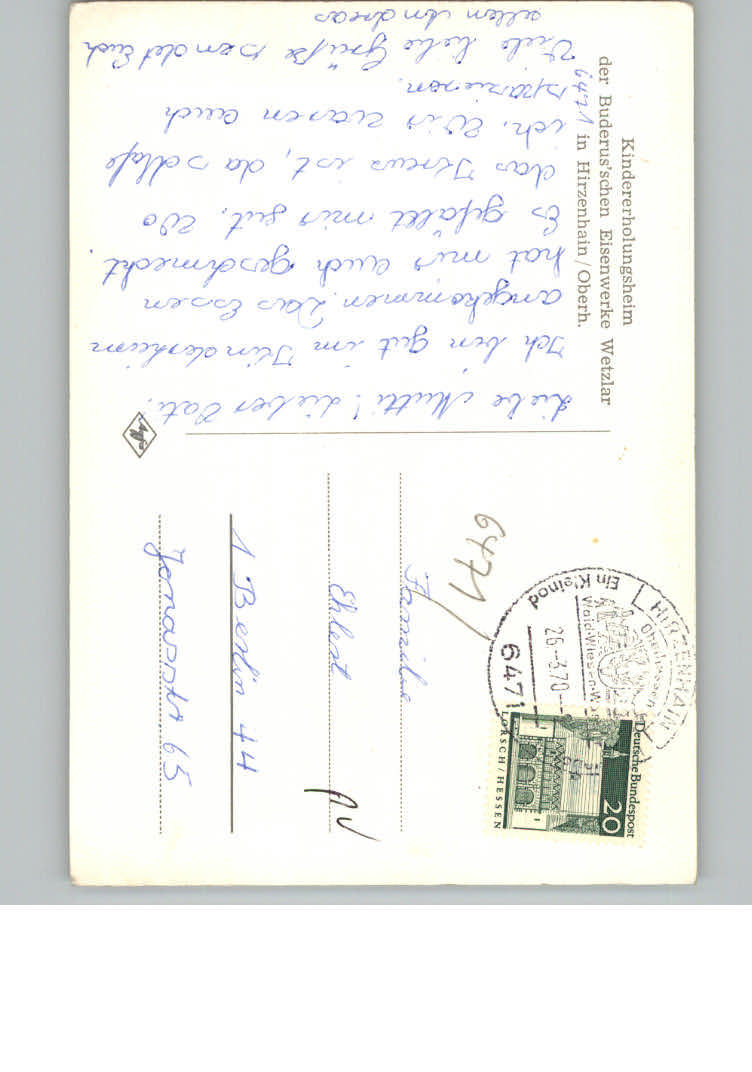 Kindererholungsheim
der Buderus'schen Eisenwerke Wetzlar
in Hirzenhain/Oberh.
Liebe Mutti! Lieber Vati!
Ich bin gut im Kinderheim
angekommen. Das Essen
hat mir auch geschmeckt.
Es gefällt mir gut. Wo
das Kreus ist, da schlafe
ich. Wir waren auch
spazieren.
Viele liebe Grüße sendet Euch
allen Andreas
6471
Familie
Ehlert
1 Berlin 44
Jonasstr 65
HIRZENHAIN
Oberhessen
Ein Kleinod
26.-3.70
6471
Deutsche Bundespost
20
LORSCH/HESSEN
Agfa